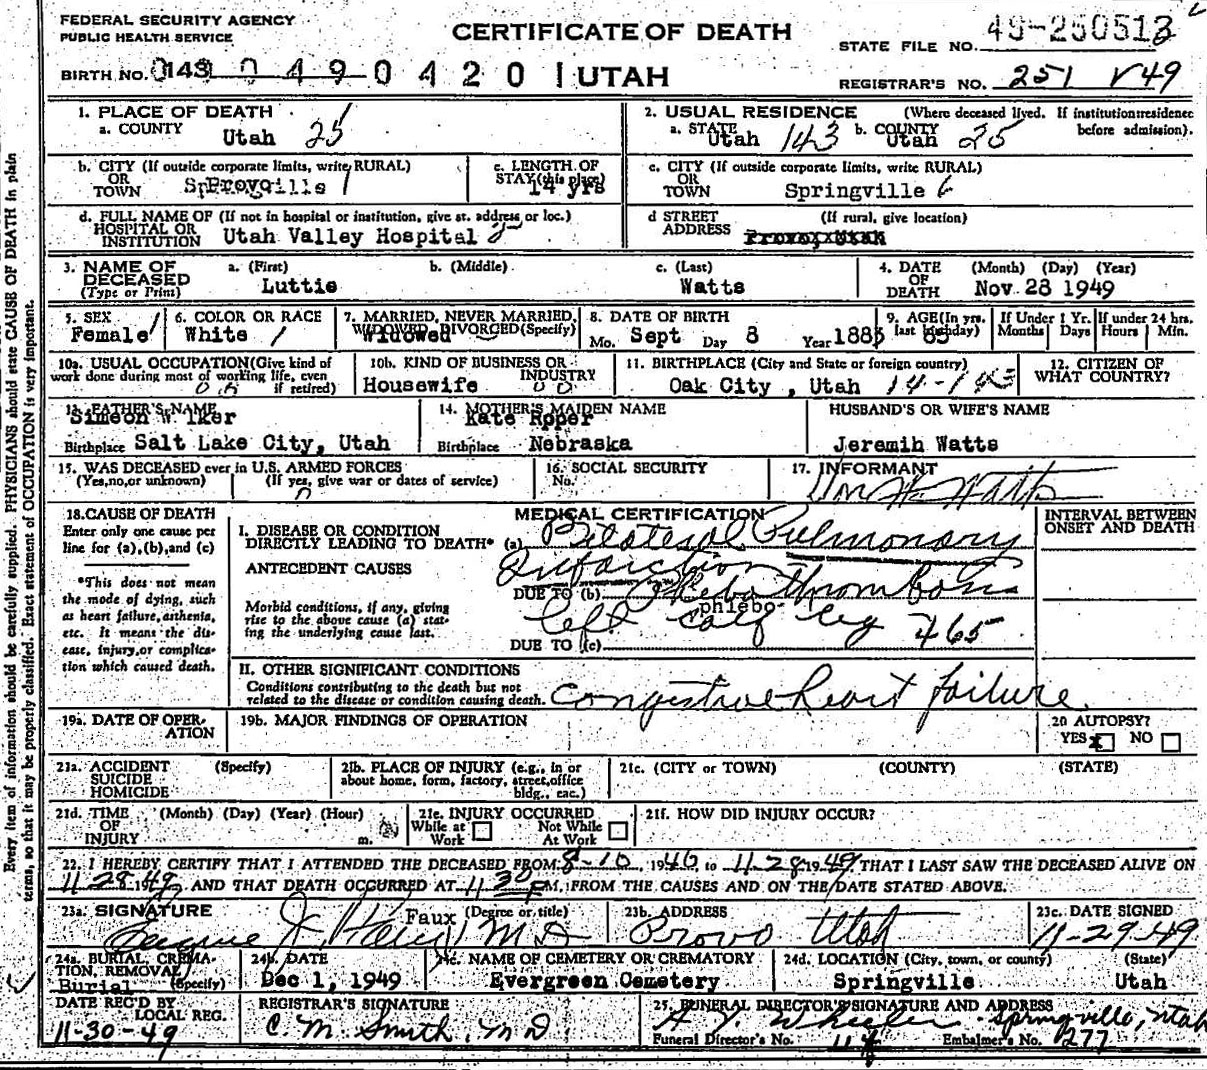 FEDERAL SECURITY AGENCY
PUBLIC HEALTH SERVICE
CERTIFICATE OF DEATH
STATE FILE NO. 49-250513
BIRTH NO. 143 0490420 UTAH
REGISTRAR'S NO. 251 V49
1. PLACE OF DEATH
a. COUNTY
Utah 25
2. USUAL RESIDENCE (Where deceased lived. If institution: residence before admission).
a. STATE Utah 143 b. COUNTY Utah 25
b. CITY (If outside corporate limits, write RURAL)
OR
TOWN Provo 1
c. LENGTH OF
STAY (this place)
14 yrs
c. CITY (If outside corporate limits, write RURAL)
OR
TOWN Springville 6
d. FULL NAME OF (If not in hospital or institution, give st. address or loc.)
HOSPITAL OR
INSTITUTION Utah Valley Hospital 8
d STREET
ADDRESS (If rural, give location)
Provo, Utah
3. NAME OF
DECEASED
(Type or Print)
a. (First) b. (Middle) c. (Last)
Luttie Watts
4. DATE
OF
DEATH
(Month) (Day) (Year)
Nov. 28 1949
5. SEX
Female
6. COLOR OR RACE
White
7. MARRIED, NEVER MARRIED,
WIDOWED DIVORCED (Specify)
Widowed
8. DATE OF BIRTH
Mo. Sept Day 8 Year
9. AGE (In yrs.
last birthday)
If Under 1 Yr.
Months Days
If under 24 hrs.
Hours Min.
10a. USUAL OCCUPATION (Give kind of
work done during most of working life, even
if retired)
10b. KIND OF BUSINESS OR
INDUSTRY
Housewife
11. BIRTHPLACE (City and State or foreign country)
Oak City, Utah
12. CITIZEN OF
WHAT COUNTRY?
13. FATHER'S NAME
Simeon W lker
Birthplace Salt Lake City, Utah
14. MOTHER'S MAIDEN NAME
Kate Roper
Birthplace Nebraska
HUSBAND'S OR WIFE'S NAME
Jeremih Watts
15. WAS DECEASED ever in U.S. ARMED FORCES
(Yes, no, or unknown) (If yes, give war or dates of service)
16. SOCIAL SECURITY
No.
17. INFORMANT
Wm H. Watts
18. CAUSE OF DEATH
Enter only one cause per
line for (a), (b), and (c)
*This does not mean
the mode of dying, such
as heart failure, asthenia,
etc. It means the dis-
ease, injury, or complica-
tion which caused death.
MEDICAL CERTIFICATION
INTERVAL BETWEEN
ONSET AND DEATH
I. DISEASE OR CONDITION
DIRECTLY LEADING TO DEATH* (a) Bilateral Pulmonary
Infarction
ANTECEDENT CAUSES
DUE TO (b) Phlebothrombosis
phlebo-
Morbid conditions, if any, giving
rise to the above cause (a) stat-
ing the underlying cause last.
left calf leg 465
DUE TO (c)
II. OTHER SIGNIFICANT CONDITIONS
Conditions contributing to the death but not
related to the disease or condition causing death.
Congestive heart failure
19a. DATE OF OPER-
ATION
19b. MAJOR FINDINGS OF OPERATION
20 AUTOPSY?
YES x NO
21a. ACCIDENT (Specify)
SUICIDE
HOMICIDE
21b. PLACE OF INJURY (e.g., in or
about home, form, factory, street, office
bldg., eac.)
21c. (CITY or TOWN) (COUNTY) (STATE)
21d. TIME (Month) (Day) (Year) (Hour)
OF
INJURY m.
21e. INJURY OCCURRED
While at Work Not While At Work
21f. HOW DID INJURY OCCUR?
22. I HEREBY CERTIFY THAT I ATTENDED THE DECEASED FROM 8-10, 1946, to 11-28 1949 THAT I LAST SAW THE DECEASED ALIVE ON
11-28 1949 AND THAT DEATH OCCURRED AT 11 30 P M, FROM THE CAUSES AND ON THE DATE STATED ABOVE.
23a. SIGNATURE (Degree or title)
Eugene J. Faux M D
Faux
23b. ADDRESS
Provo Utah
23c. DATE SIGNED
11-29-49
24a. BURIAL, CREMA-
TION, REMOVAL
(Specify)
Burial
24b. DATE
Dec 1, 1949
24c. NAME OF CEMETERY OR CREMATORY
Evergreen Cemetery
24d. LOCATION (City, town, or county) (State)
Springville Utah
DATE REC'D BY
LOCAL REG.
11-30-49
REGISTRAR'S SIGNATURE
C. M. Smith, M D.
25. FUNERAL DIRECTOR'S SIGNATURE AND ADDRESS
A. Y. Wheeler Springville, Utah
Funeral Director's No. Embalmer's No. 277
Every item of information should be carefully supplied. PHYSICIANS should state CAUSE OF DEATH in plain
terms, so that it may be properly classified. Exact statement of OCCUPATION is very important.